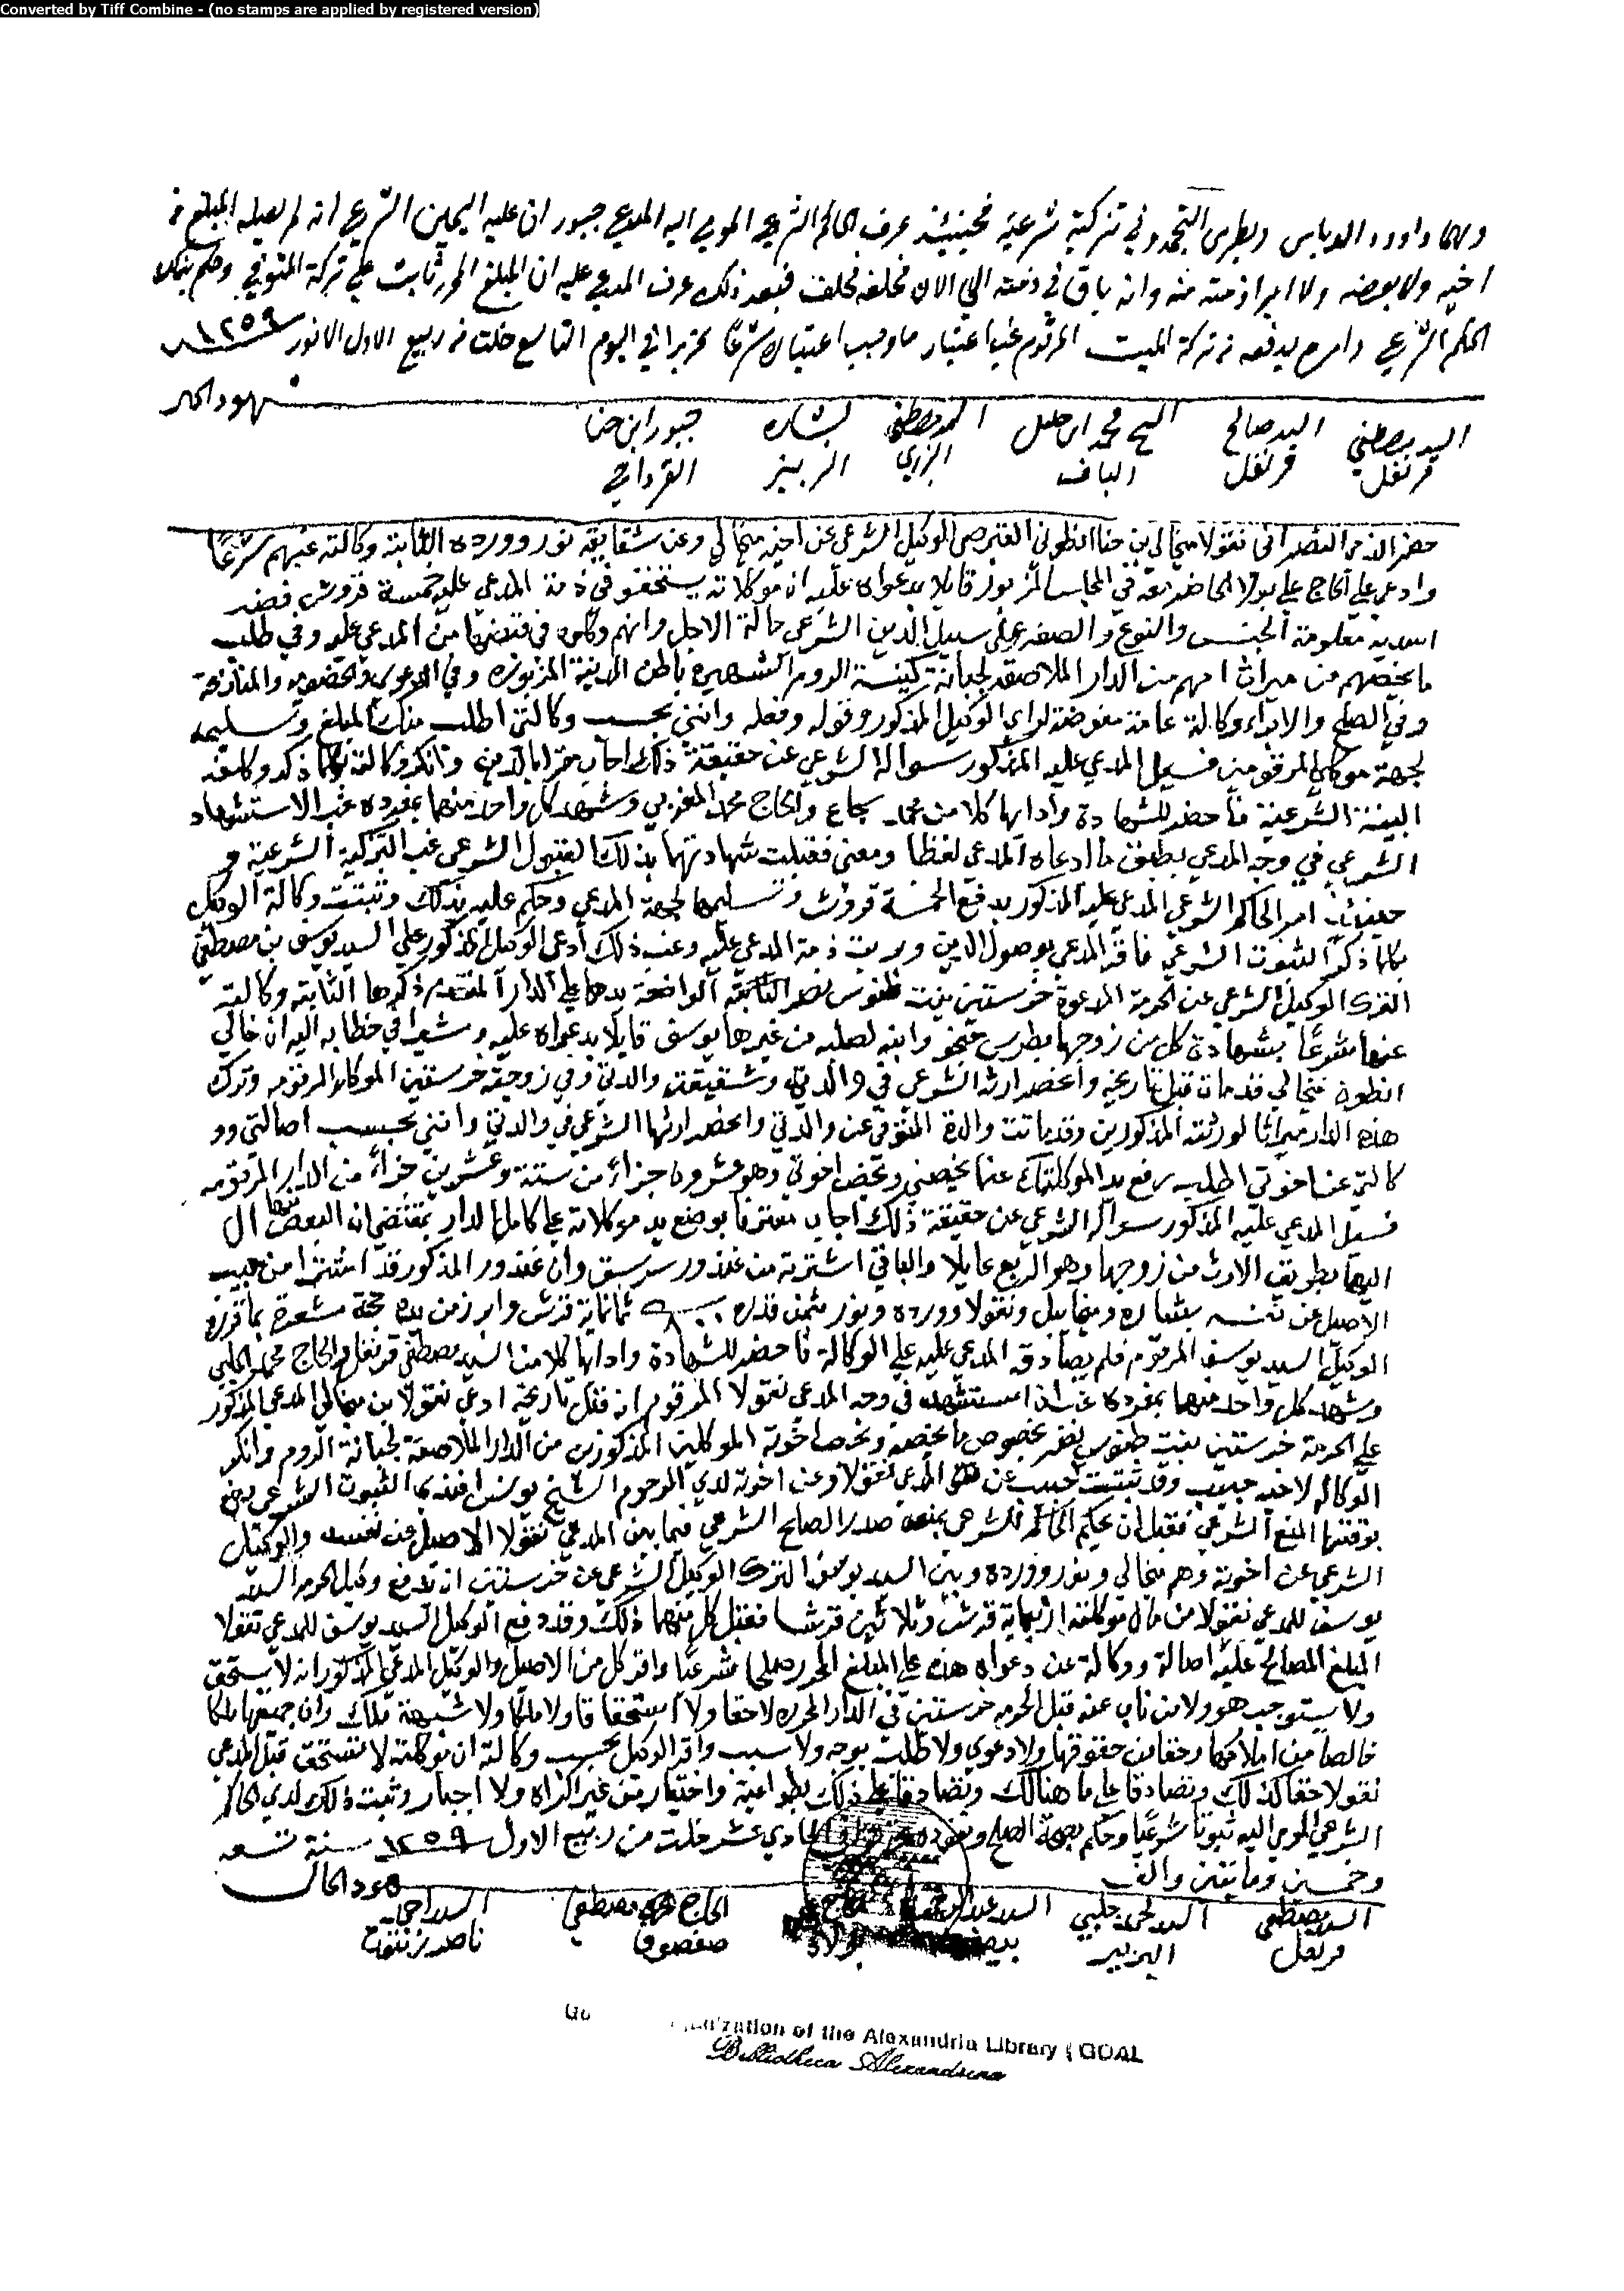 Converted by Tiff Combine - (no stamps are applied by registered version)
وهما داوود الدباس وبطرس التجمدوني تزكية شرعية فحينئذ عرف الحاكم الشرعي المومى اليه المدعي جبور ان عليه اليمين الشرعي انه لم يصله المبلغ من
اخيه ولا بعضه ولا ابرا ذمته منه وانه باق في ذمته الي الان فحلفه فحلف فبعد ذلك عرف المدعي عليه ان المبلغ المحرر ثابت علي تركة المتوفي وحكم بذلك
الحكم الشرعي وامره يدفعه من تركة الميت المرقوم غب اعتبار ما وجب اعتباره شرعًا تحريرا في اليوم التاسع خلت من ربيع الاول الانور ١٢٥٩
شهود الحال
السيد مصطفي السيد صالح الشيخ محمد ابن خليل مصطفي بشاره جبور ابن حنا
قرنفل قرنفل الباف الزري الزبيز القرداحي
حضر الذمي النصراني نقولا ميخالي بن حنا انطوني القبرصي الوكيل الشرعي عن اخيه ميخالي وعن شقايقه نور وورده الثابتة وكالته عنهم شرعًا
وادعي علي الحاج علي بولاد الحاضر معه في المجلس المزبور قايلا بدعواه عليه ان موكلاته يستحقو في ذمة المدعي عليه خمسة قروش فضه
اسديه معلومة الجنس والنوع والصفه علي سبيل الدين الشرعي حالة الاجل وانهم وكلوه في قبضها من المدعي عليه وفي طلب
ما يخصهم من ميراث امهم من الدار الملاصقة لجبانة كنيسة الروم الشهيرة باطن المدينة المزبوره وفي الدعوى والمنازعة
وفي الصلح والابراء وكالة عامة مفوضة لراي الوكيل المذكور وقوله وفعله وانني بحسب وكالتي اطلب منك المبلغ وتسليمه
لجهة موكلي المرقومين فسيل المدعي عليه المذكور سواله الشرعي عن حقيقة ذلك اجاب مقرا بالدين وانكر وكالته بكلما ذكر وكلفه
البينة الشرعية فاحضر للشهادة وادايها كلا من محمد والحاج محمد المغربي وشهد كل واحد منهما بمفرده غب الاستشهاد
الشرعي في وجه المدعي بطبق ما ادعاه المدعي لفظا ومعنى فقبلت شهادتهما بذلك القبول الشرعي غب التزكية الشرعية و
حينئذ امر الحاكم الشرعي المدعي عليه المذكور بدفع الخمسة قروش وتسليمها لجهة المدعي وحكم عليه بذلك وثبتت وكالة الوكيل
بكلما ذكر الثبوت الشرعي فاقر المدعي بوصول الدين وبريت ذمة المدعي عليه وعند ذلك ادعي الوكيل المذكور علي السيد يوسف بن مصطفي
الوكيل الشرعي عن الحرمة المدعوة خرستين بنت طنوس نصر الواضعة يدها علي الدار المتقدم ذكرها الثابتة وكالته
عنها شرعًا بشهادة كل من زوجها بطرس وابنه لصلبه من غيرها يوسف قايلا بدعواه عليه ومشيرا في خطابه اليه ان خالي
انطون ميخالي قد مات قبل تاريخه وانحصر ارثه الشرعي في والدته وشقيقته والدتي وفي زوجته خرستين الموكله المرقومه وترك
هذه الدار ميراثا لورثته المذكورين وقد ماتت والدة المتوفي عن والدتي وانحصر ارثها الشرعي في والدتي وانني بحسب اصالتي وو
كالتي عن اخوتي اطلب رفع يد الموكلة عما يخصني ويخص اخوتي وهو عشرون جزاء من ستة وعشرين جزاء من الدار المرقومه
فسيل المدعي عليه المذكور سواله الشرعي عن حقيقة ذلك اجاب معترفا بوضع يد موكلاته علي كامل الدار بمقتضي ان البعض منها ال
اليها بطريق الارث من زوجها وهو الربع عايلا والباقي اشترته من غندور سرسق وان غندور المذكور قد اشترا من حبيب
الاصيل عن نفسه بشاره وميخايل ونقولا وورده ونور بثمن قدره ٨٠٠ ثمانماية قرش وابرز من يده حجة مشعرة بما قرره
الوكيل السيد يوسف المرقوم فلم يصادق المدعي عليه علي الوكالة فاحضر للشهادة وادايها كلا من السيد مصطفي قرنفل والحاج محمد الحلبي
وشهد كل واحد منهما بمفرده غب ان استشهد في وجه المدعي نقولا المرقوم انه قبل تاريخه ادعي نقولا بن ميخالي المدعي المذكور
علي الحرمة خرستين بنت طنوس نصر بخصوص ما يخصه ويخص اخوته الموكلين المذكورين من الدار الملاصقة لجبانة الروم وانكر
الوكاله لاخيه حبيب وقد ثبتت حبيب عن المدعي نقولا وعن اخوته لدي المرحوم الشيخ يونس افندي الثبوت الشرعي
بوقتها المنع الشرعي فقبل ان يحكم الحاكم الشرعي بمنعه صدر الصلح الشرعي فيما بين المدعي نقولا الاصيل عن نفسه والوكيل
الشرعي عن اخوته وهم ميخالي ونور وورده وبين السيد يوسف الوكيل الشرعي عن خرستين ان يدفع وكيل الحرمه السيد
يوسف للمدعي نقولا من مال موكلته اربعماية قرش وثلاثين قرشا فقبل كل منهما ذلك وقد دفع الوكيل السيد يوسف للمدعي نقولا
المبلغ المصالح عليه اصالة ووكالة عن دعواه هذه علي المبلغ المحرر صلحا شرعيا واقر كل من الاصيل والوكيل المدعي المذكور انه لا يستحق
ولا يستوجب هو ولا من ناب عنه قبل الحرمه خرستين في الدار المحرره لا حقا ولا استحقاقا ولا ملكا ولا شبهة ملك وان جميعها ملكا
خالصا من املاكها وحقا من حقوقها ولا دعوي ولا طلب بوجه ولا سبب واقر الوكيل بحسب وكالته ان موكلته لا تستحق قبل المدعي
نقولا حقا كذلك وتصادقا علي ما هنالك وتصادقا علي ذلك بطواعية واختيار من غير اكراه ولا اجبار وثبت ذلك لدي الحاكم
الشرعي المومي اليه ثبوتا شرعيا وحكم بصحة الصلح الحادي عشر خلت من ربيع الاول ١٢٥٩ سنة تسعه
وخمسين ومايتين والف
شهود الحال
السيد مصطفي السيد جلبي السيد عبد الحاج مصطفي السيد
قرنفل البربير صفصوف ناصر
Organization of the Alexandria Library ( GOAL
Bibliotheca Alexandrina